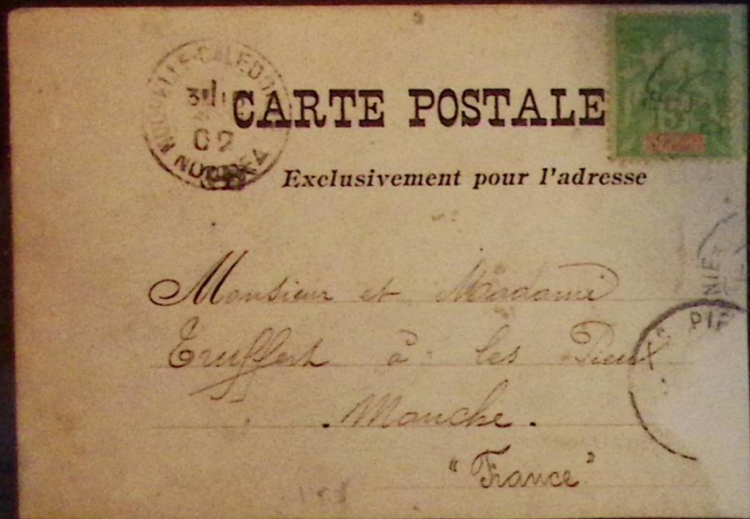 NOUVELLE-CALEDONIE
02
NOUMEA
CARTE POSTALE
Exclusivement pour l'adresse
Monsieur et Madame
Truffert à les Pieux
Manche.
"France"
PI